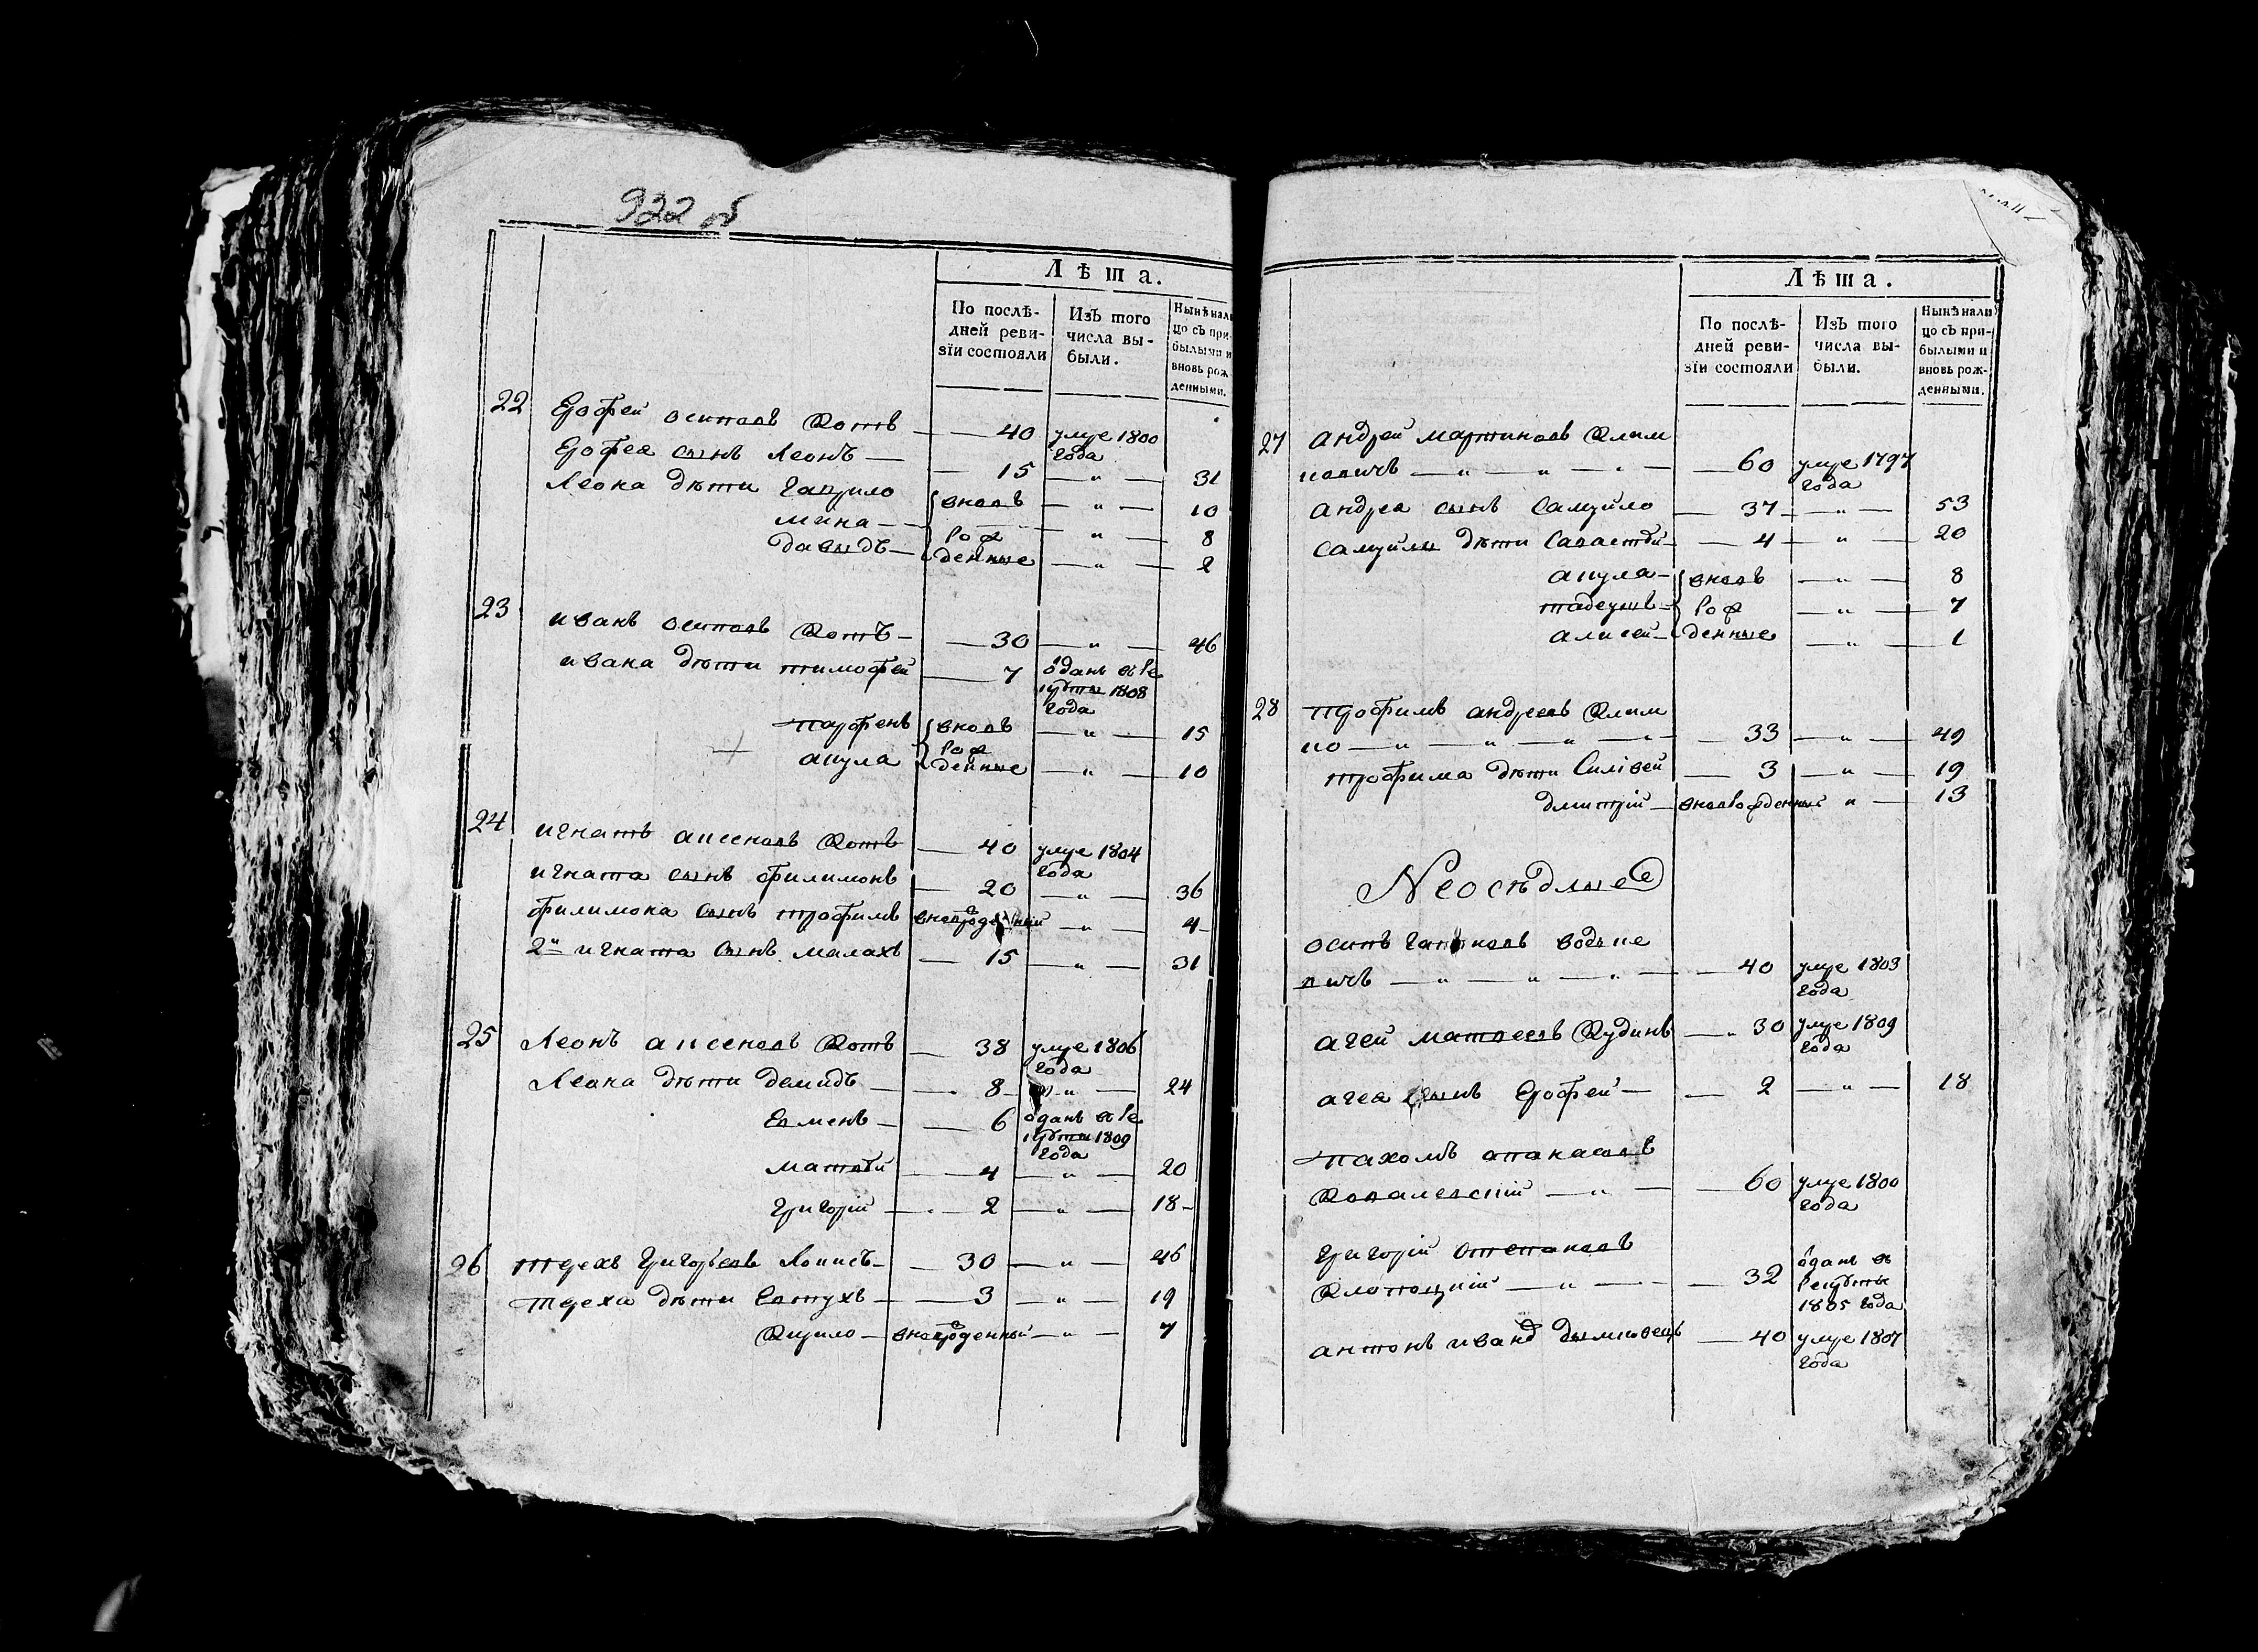 922 об
Лѣта.
По послѣ-
дней реви-
зїи состояли
Изъ того
числа вы-
были.
Нынѣ нали
цо съ при-
былыми и
вновь рож-
денными.
22 Ерофей осиповъ Котъ — 40 умре 1800
года
Ерофея сынъ Леонъ — 15 — „ — 31
Леона дѣти гаврило вновь — „ — 10
мина — рож „ — 8
давыдъ — денные — „ — 2
23 иванъ осиповъ Котъ — 30 — „ — 46
ивана дѣти тимофей — 7 ѡданъ въ ре
круты 1808
года
парфенъ вновь — „ — 15
рож
акула денные — „ — 10
24 игнатъ аксеновъ Котъ — 40 умре 1804
года
игната сынъ филимонъ — 20 — „ — 36
филимона сынъ трофимъ — „ — 4
2й игната сынъ малахъ — 15 — „ — 31
25 Леонъ аксеновъ Котъ — 38 умре 1806
года
Леона дѣти демидъ — 8 — „ — 24
Евменъ — 6 ѡданъ въ ре
круты 1809
года
матвѣй — 4 — „ — 20
григорій — 2 — „ — 18
26 терехъ григорьевъ — 30 — „ — 46
тереха дѣти Евтухъ — 3 — „ — 19
Кирило — вноврожденный — „ — 7
Лѣта.
По послѣ-
дней реви-
зїи состояли
Изъ того
числа вы-
были.
Нынѣ нали
цо съ при-
былыми и
вновь рож-
денными.
27 андрей мартиновъ Клим
ковичъ — „ — „ — „ — 60 умре 1797
года
андрея сынъ Самуйло — 37 — „ — 53
Самуйлы дѣти Савастѣй — 4 — „ — 20
акула — вновь — „ — 8
тадеушъ — рож — „ — 7
алисей — денные — „ — 1
28 трофимъ андреевъ Клим
ко — „ — „ — „ — „ — 33 — „ — 49
трофима дѣти Силівей — 3 — „ — 19
дмитрій — вновьрожденный „ — 13
Неосѣдлые
осипъ водъне
вичъ — „ — „ — „ — 40 умре 1803
года
агей матвеевъ Кудинъ — 30 умре 1809
года
агея сынъ Ерофей — 2 — „ — 18
пахомъ апанасовъ
Ковалевскій — „ — 60 умре 1800
года
григорій степановъ
Клопоцкій — „ — 32 ѡданъ въ
рекруты
1805 года
антонъ иванов — 40 умре 1807
года